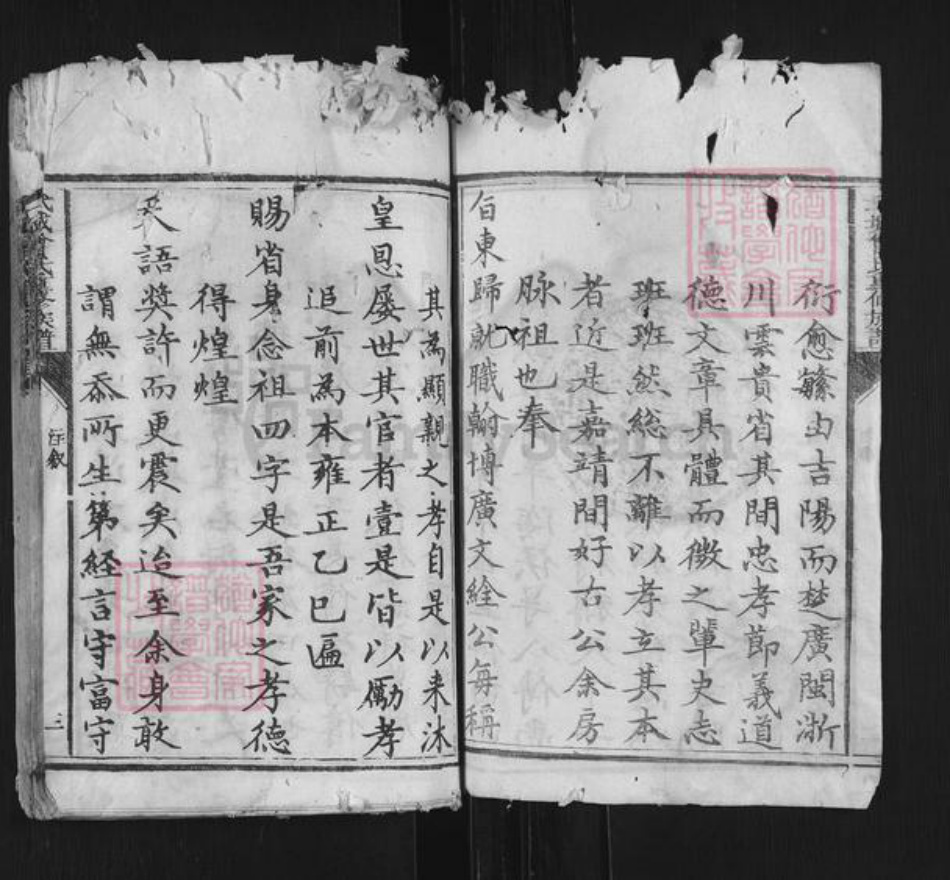 衍愈繁由吉陽而楚廣閩浙
川雲貴省其間忠孝節義道
德文章具體而微之輩史志
班班然總不離以孝立其本
者近是嘉靖間好古公余房
脉祖也奉
旨東歸就職翰博廣文絟公每稱
其為顯親之孝自是以来沐
皇恩屡世其官者壹是皆以勵孝
追前為本雍正乙巳匾
賜省身念祖四字是吾家之孝德
得煌煌
天語奖許而更震矣迨至余身敢
謂無忝所生第経言守富守
武城曾氏重修族譜
序叙
三
FamilySearch